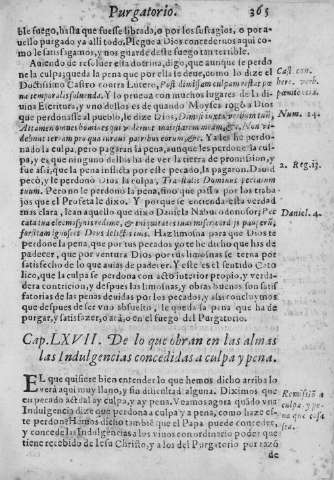 Purgatorio. 365
ble fuego, hasta que fuesse librado, o por los sufragios, o por a-
uello purgado ya alli todo. Plegue a Dios concedernos aqui co-
mo le satisfagamos, y nos guarde deste fuego tan terrible.
Auiendo de resoluer esta dotrina, digo, que aunque se perdo-
ne la culpa; queda la pena que por ella se deue, como lo dize el
Doctissimo Castro contra Lutero,
na temporalis soluenda. Y lo pruena con muchos lugares de la di-
uina Escritura, y vno dellos es de quando Moyses rogò a Dios
que perdonasse al pueblo, le dize Dios, Dimisi iuxta verbum tuum,
Attamen omnes homines qui
debunt terram pro qua iuraui patribus eorum, &c. Ya les he perdo-
nado la culpa, pero pagaran la pena, aunque les perdone la cul-
pa, y es que ninguno dellos ha de ver la tierra de promission, y
fue assi, que la pena inflicta por este pecado, la pagaron. Dauid
pecò, y le perdonò Dios la culpa, Transtulit Dominus peccatum
tuum. Pero no le perdonò la pena, sino que passò por los traba-
jos que el Profeta le dixo. Y porque se entienda esta verdad
mas clara, lean aquello que dixo Daniel a Nabucodonosor; Pec
cata tua eleemosynis redime, & iniquitates tuas misericordijs pauperũ,
forsitam ignoscet Deus delictis tuis. Haz limosna para que Dios te
perdone la pena, que por tus pecados yo te he dicho que has de
padecer, que por ventura Dios por tus limosnas se terna por
satisfecho de lo que auias de padecer. Y este es el sentido Cato
lico, que la culpa se perdona con acto interior propio, y verda
dera contricion, y despues las limosnas, y obras buenas son satis
fatorias de las penas deuidas por los pecados, y assi concluymos
que despues de ser vno absuelto, le queda la pena que ha de
purgar, y satisfazer, o aqui, o en el fuego del Purgatorio.
Cap. LXVII. De lo que obran en las almas
las Indulgencias concedidas a culpa y pena.
EL que quisiere bien entender lo que hemos dicho arriba lo
verà aqui muy llano, y sin dificultad alguna. Diximos que
en pecado actual ay culpa, y ay pena. Veamos agora quãdo vna
Indulgencia dize que perdona a culpa y a pena, como haze es-
te perdon? Hemos dicho tambiẽ que el Papa puede conceder,
y concede las Indulgencias a los viuos con ordinario poder que
tiene recebido de Iesu Christo, y a los del Purgatorio por razõ
de
Cast. con.
heres. verb.
Num. 14.
2. Reg. 12.
Daniel. 4.
Remissiõ a
culpa y pe-
na que cosa
sea.